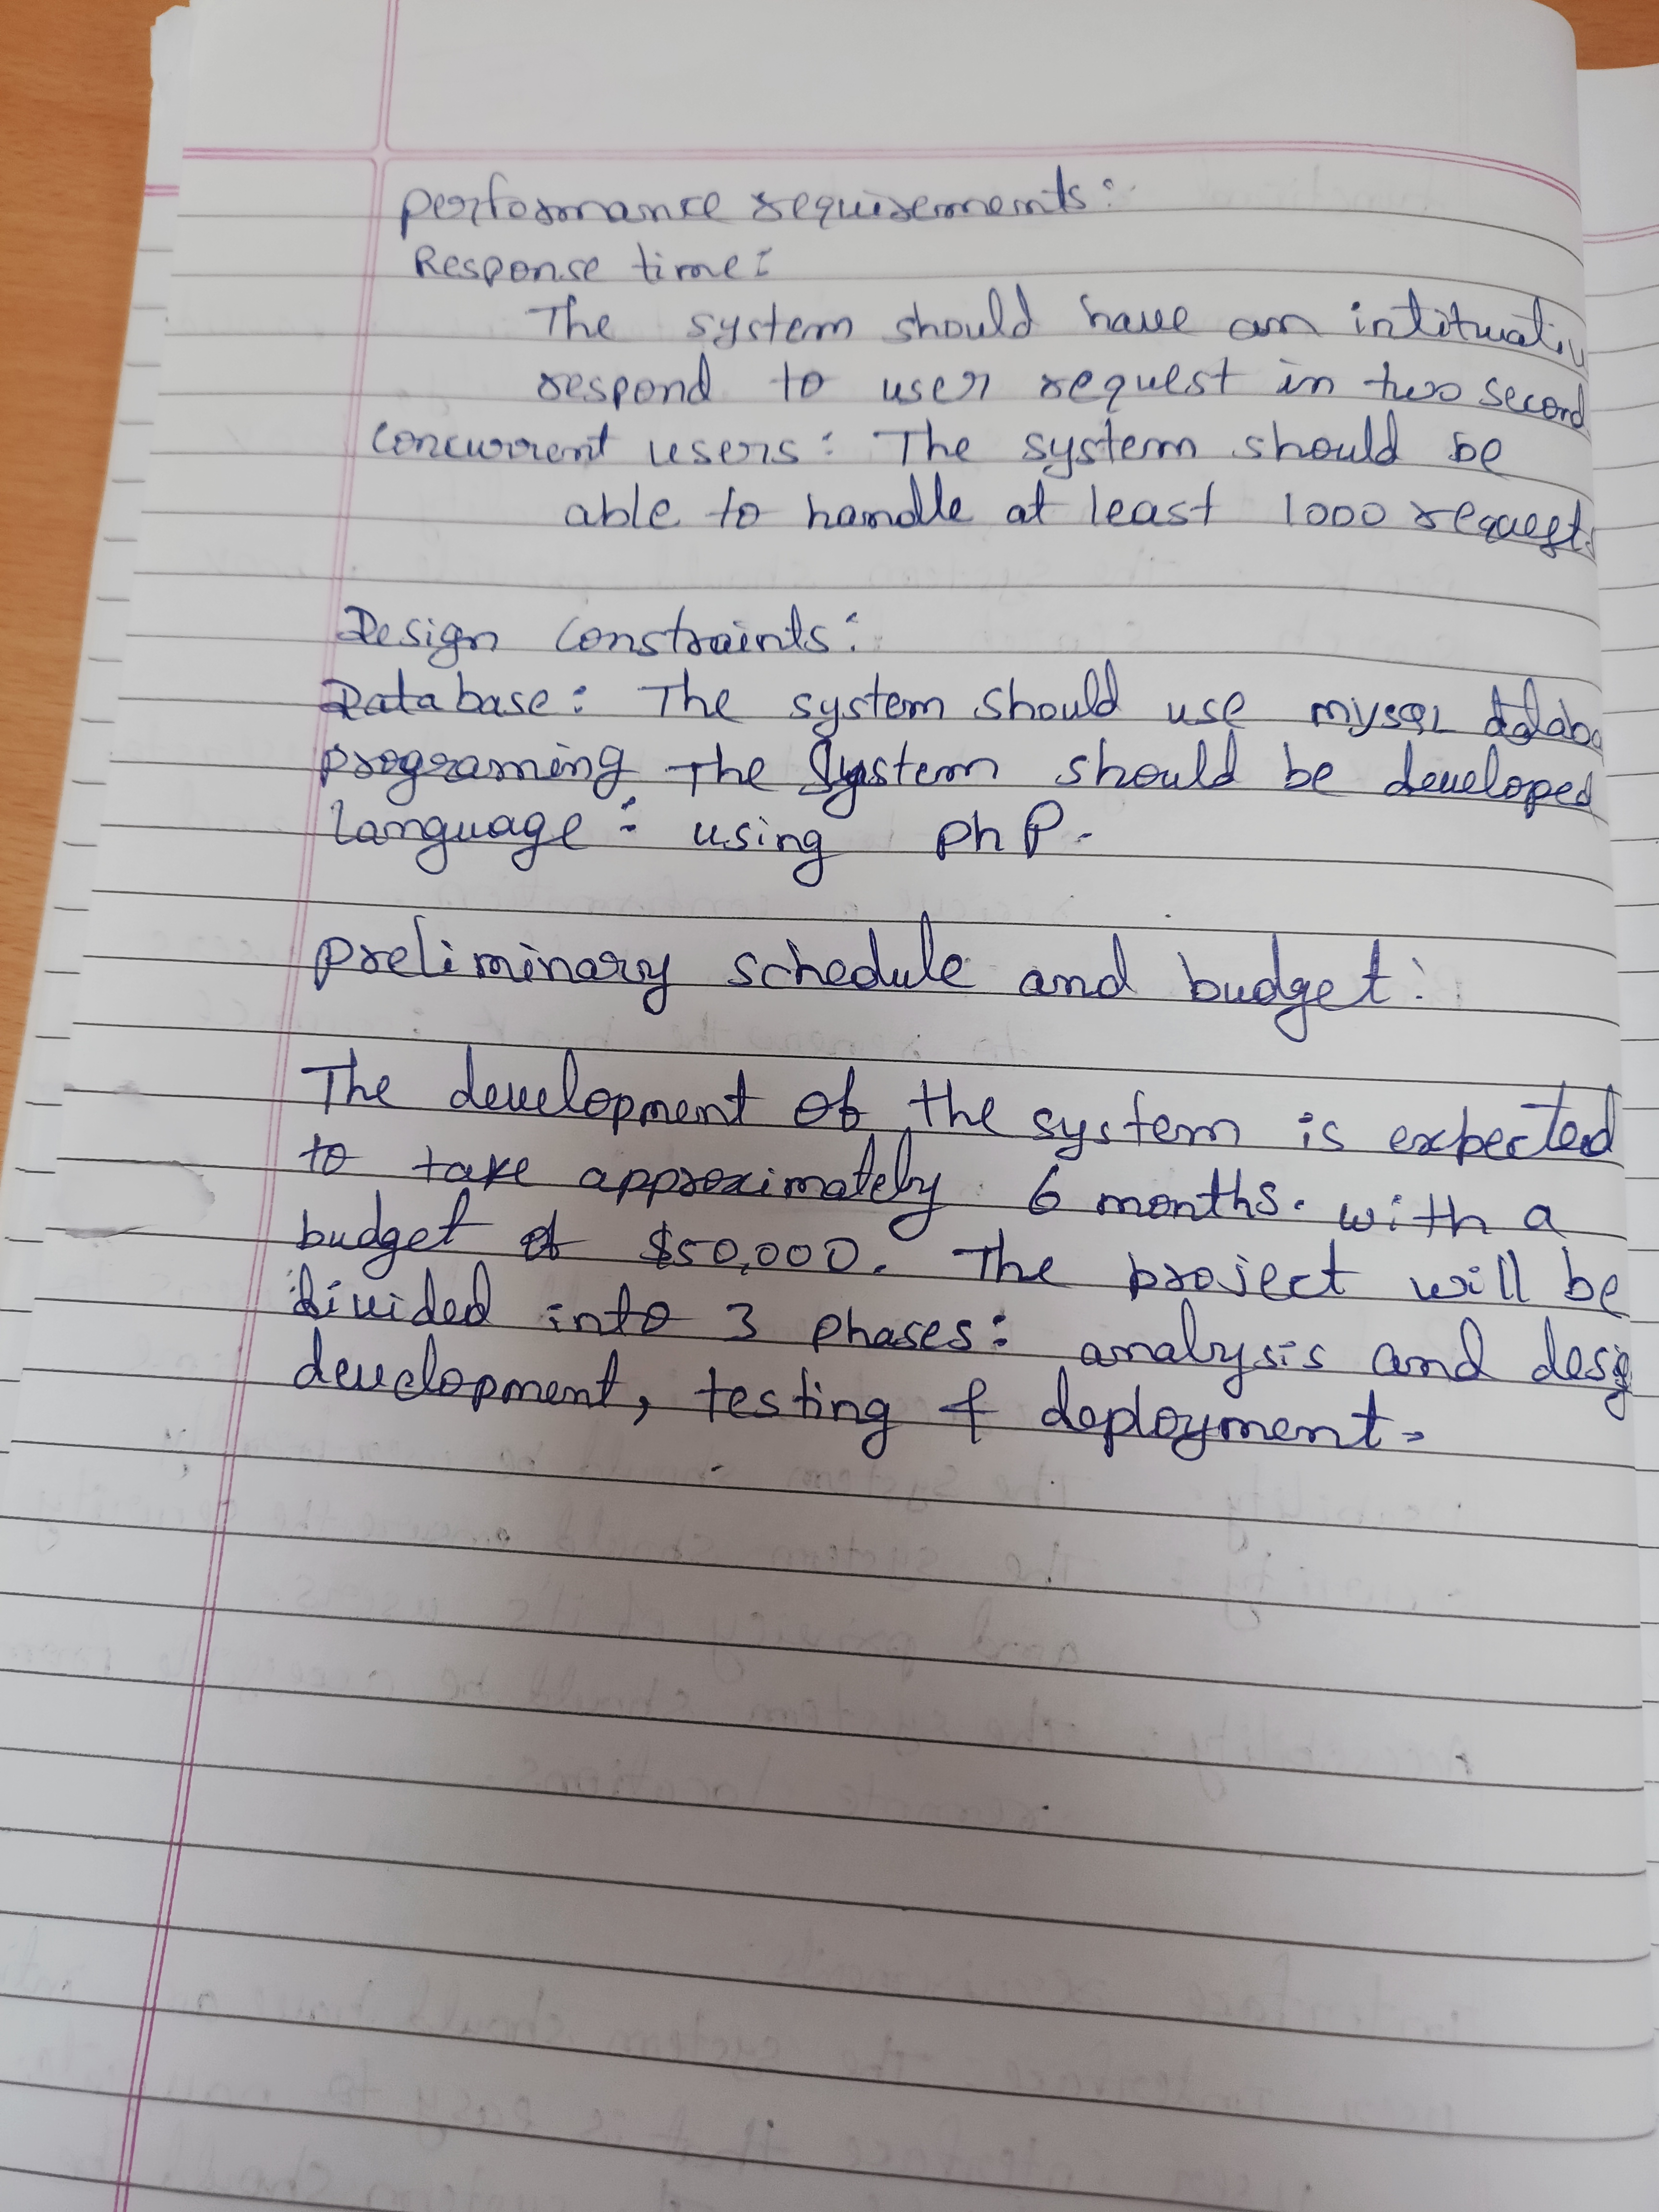 performance requirements:
Response time:
The system should have an intituativ
respond to user request in two second
concurrent users: The system should be
able to handle at least 1000 request.
Design constraints:
Database: The system should use mysQL databa
programing The System should be developed
language: using PhP.
preliminary schedule and budget:
The development of the system is expected
to take approximately 6 months. with a
budget of $50,000. The project will be
divided into 3 phases: analysis and desig
development, testing & deployment.